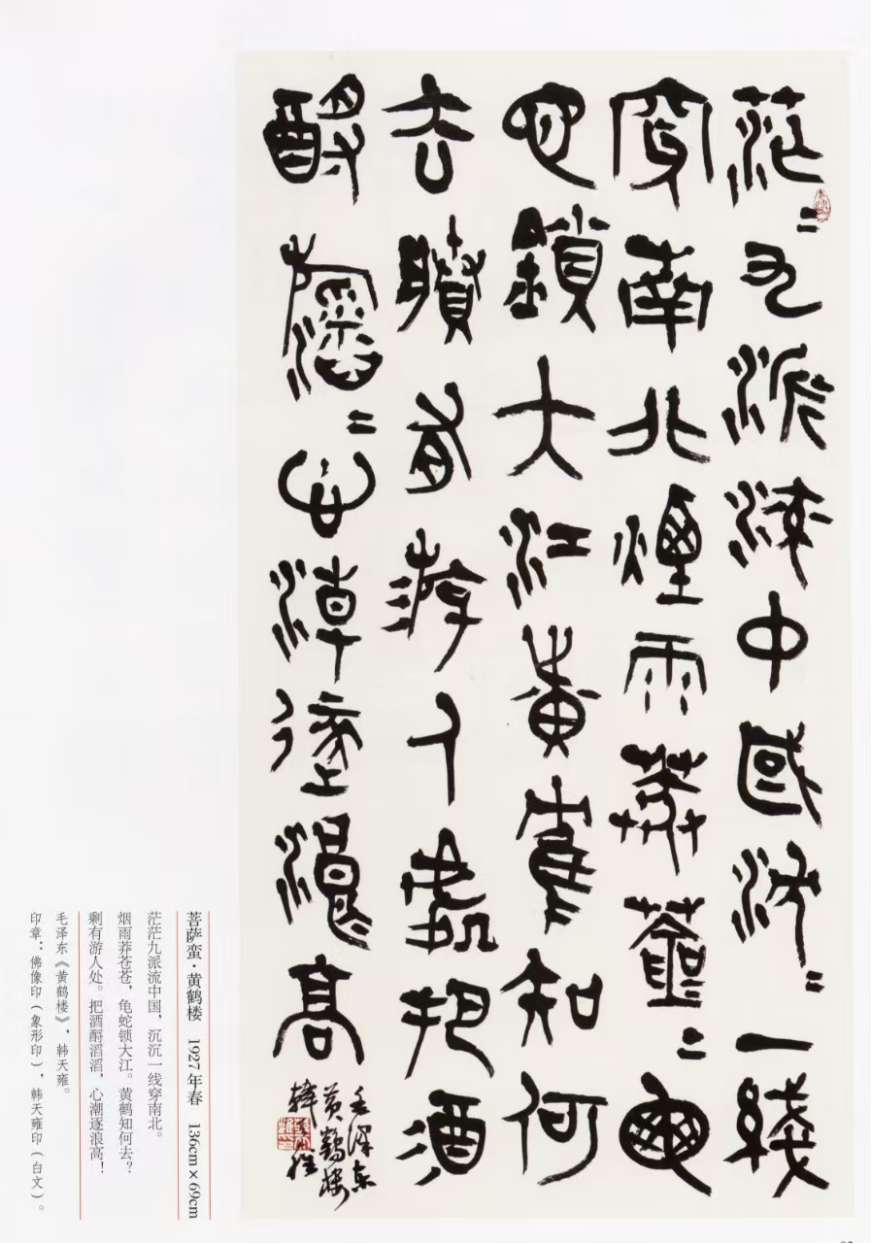 茫〻九派流中國沈〻一綫
穿南北煙雨莽蒼〻龜
它鎖大江黃隺知何
去賸有游人處把酒
酹滔〻心潮逐浪高
毛澤東
黃鶴樓
韓
菩萨蛮·黄鹤楼 1927年春 136cm×69cm
茫茫九派流中国，沉沉一线穿南北。
烟雨莽苍苍，龟蛇锁大江。黄鹤知何去？
剩有游人处。把酒爵滔滔，心潮逐浪高！
毛泽东《黄鹤楼》，韩天雍。
印章：佛像印（象形印），韩天雍印（白文）。